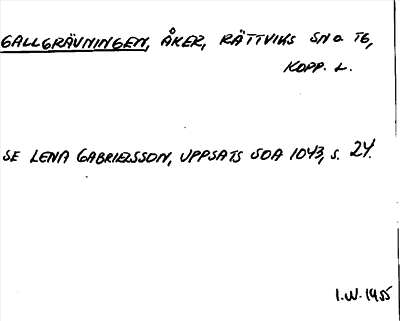 GALLGRÄVNINGEN, ÅKER, RÄTTVIKS SN O. TG,
KOPP. L.
SE LENA GABRIELSSON, UPPSATS SOA 1043, S. 24.
I.W. 1955